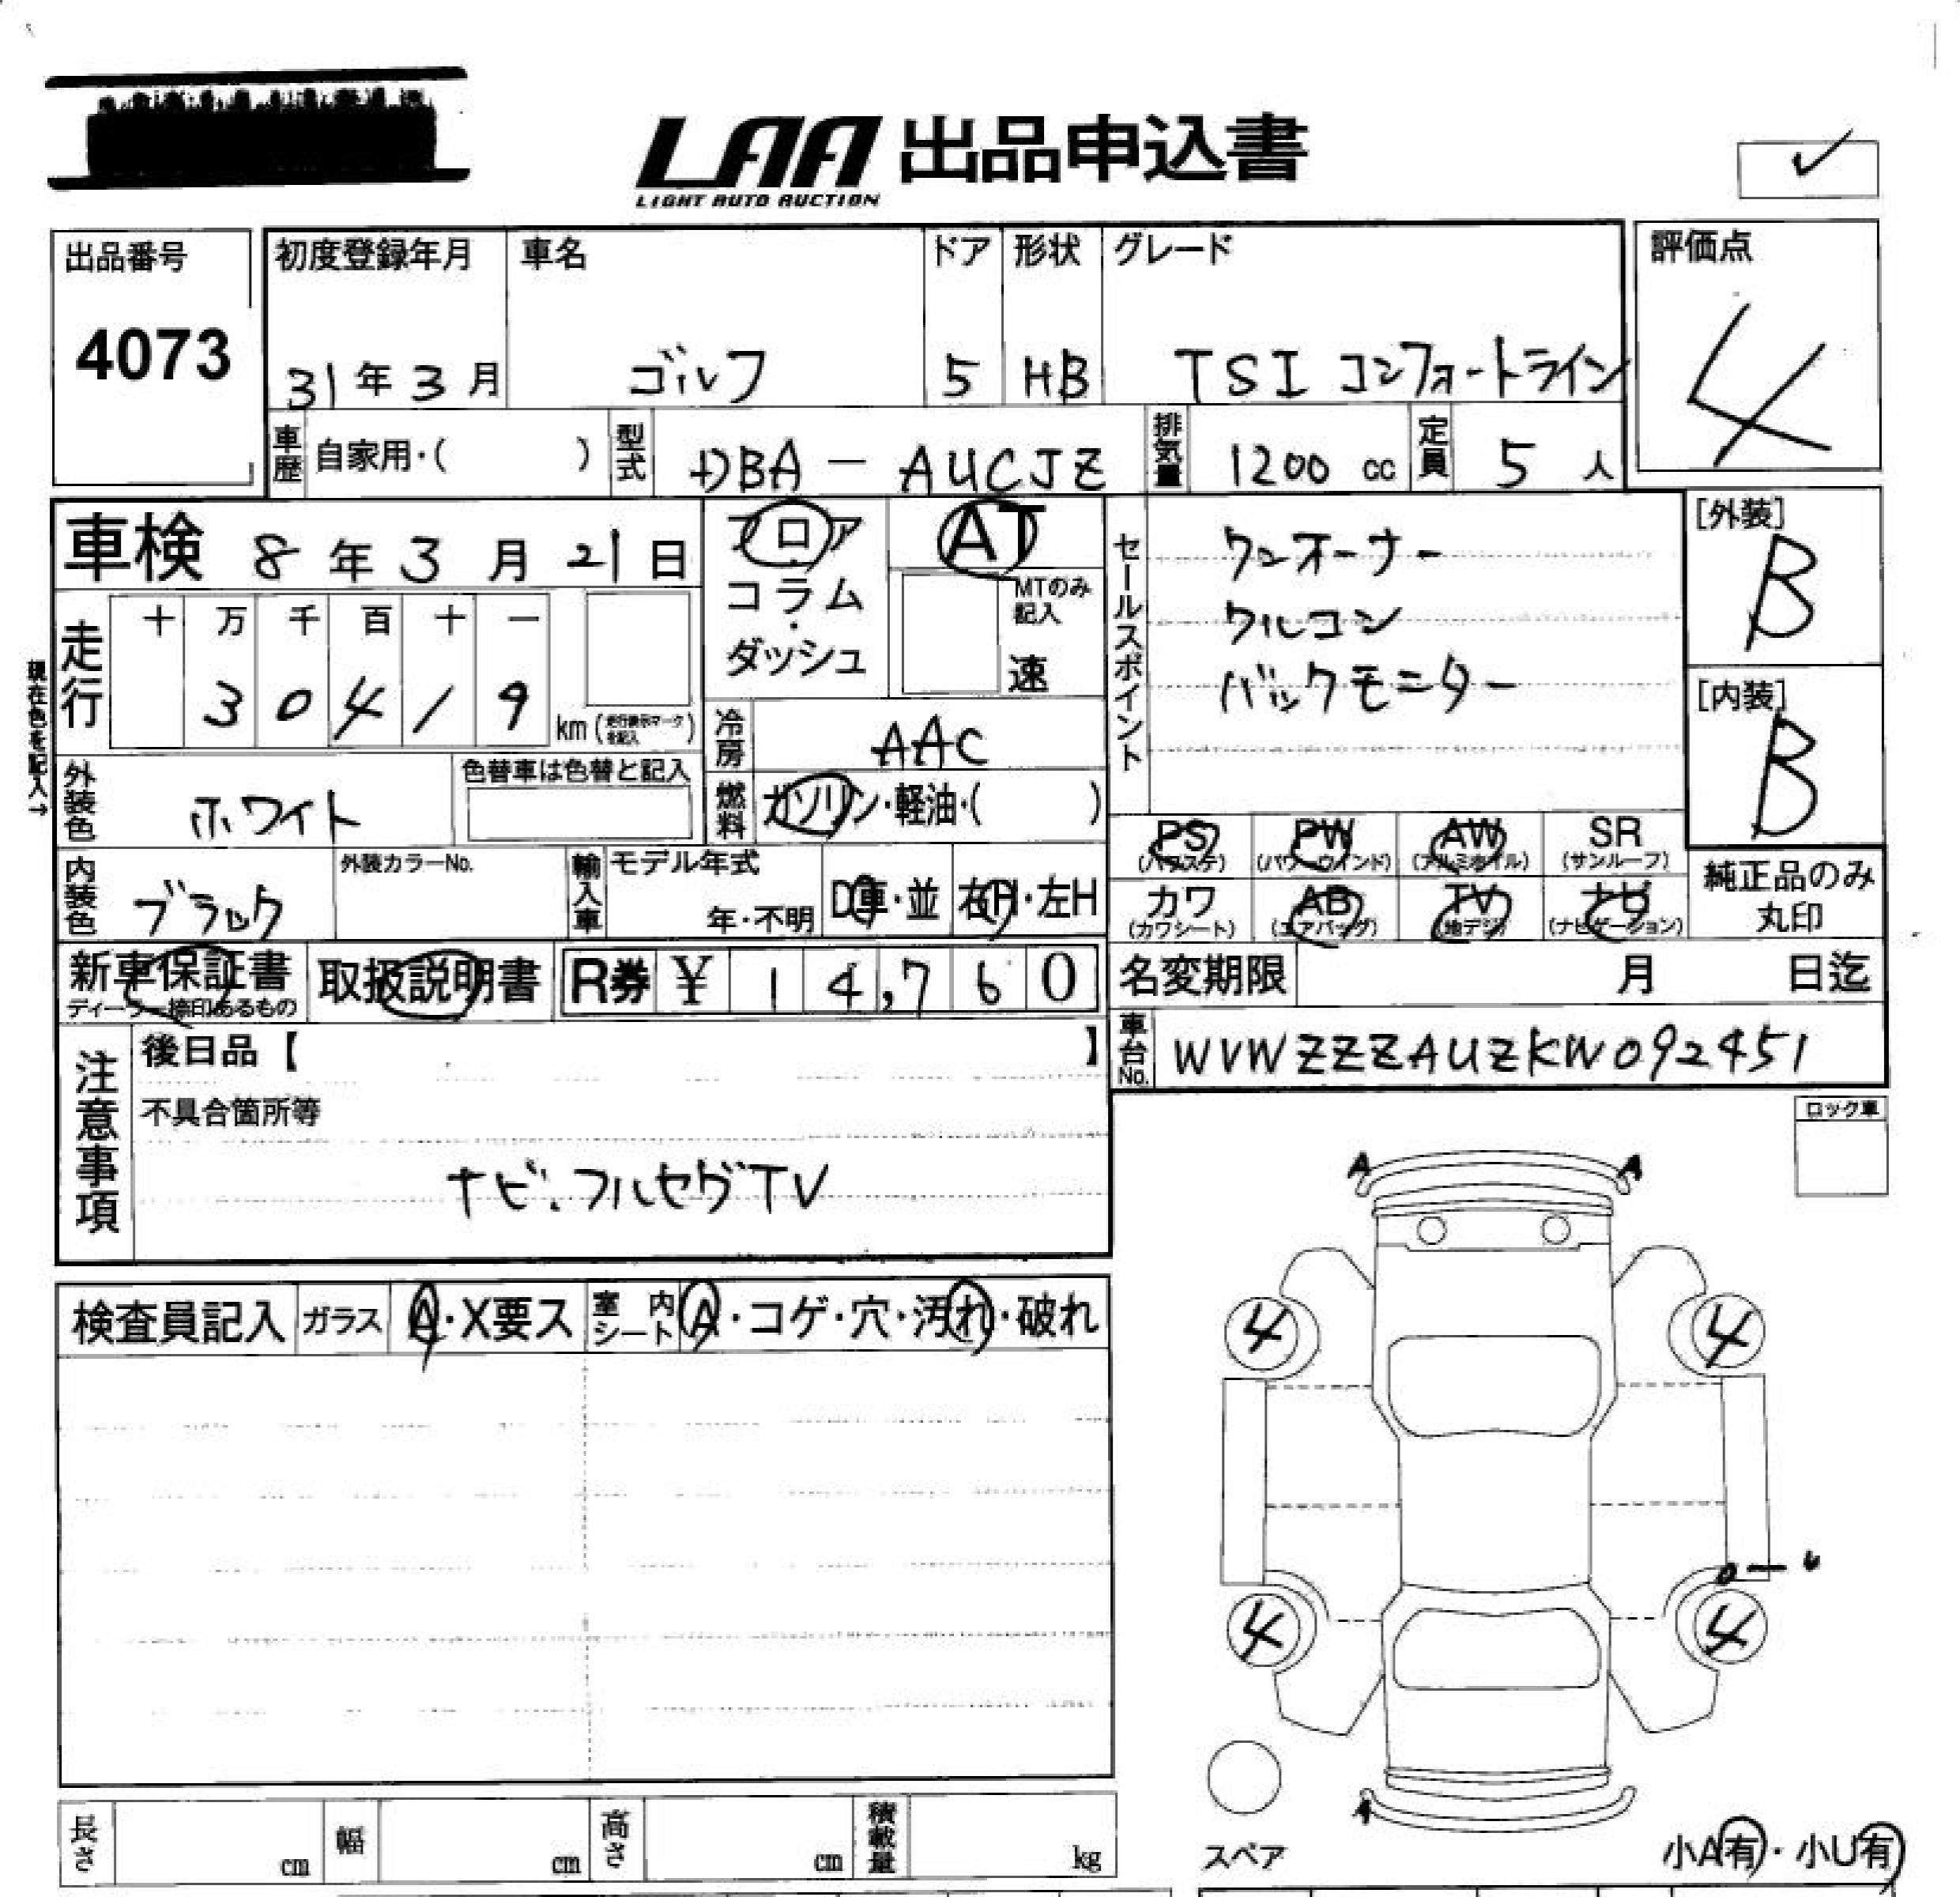 LAA 出品申込書
LIGHT AUTO AUCTION
出品番号
4073
初度登録年月
31年3月
車名
ゴルフ
ドア
5
形状
HB
グレード
TSI コンフォートライン
評価点
4
車歴 自家用・( )
型式 DBA-AUCJZ
排気量 1200 cc
定員 5人
車検 8年3月21日
フロア・コラム・ダッシュ
AT
MTのみ記入
速
セールスポイント
ワンオーナー
クルコン
バックモニター
[外装]
B
[内装]
B
現在色を記入→
走行
十 万 千 百 十 一
3 0 4 1 9 km (走行表示マークを記入)
冷房 AAC
外装色 ホワイト
色替車は色替と記入
燃料 ガソリン・軽油・( )
PS (パワステ)
PW (パワーウインド)
AW (アルミホイル)
SR (サンルーフ)
カワ (カワシート)
AB (エアバッグ)
TV (地デジ)
ナビ (ナビゲーション)
純正品のみ丸印
内装色 ブラック
外装カラーNo.
輸入車
モデル年式
年・不明
D車・並
右H・左H
新車保証書
ディーラー捺印あるもの
取扱説明書
R券 ¥ 14,760
名変期限 月 日迄
車台No. WVWZZZAUZKW092451
注意事項
後日品【 】
不具合箇所等
ナビ.フルセグTV
ロック車
A A
検査員記入
ガラス A・X要ス
室内シート A・コゲ・穴・汚れ・破れ
4 4
4 4
A
長さ cm
幅 cm
高さ cm
積載量 kg
スペア
小A有・小U有